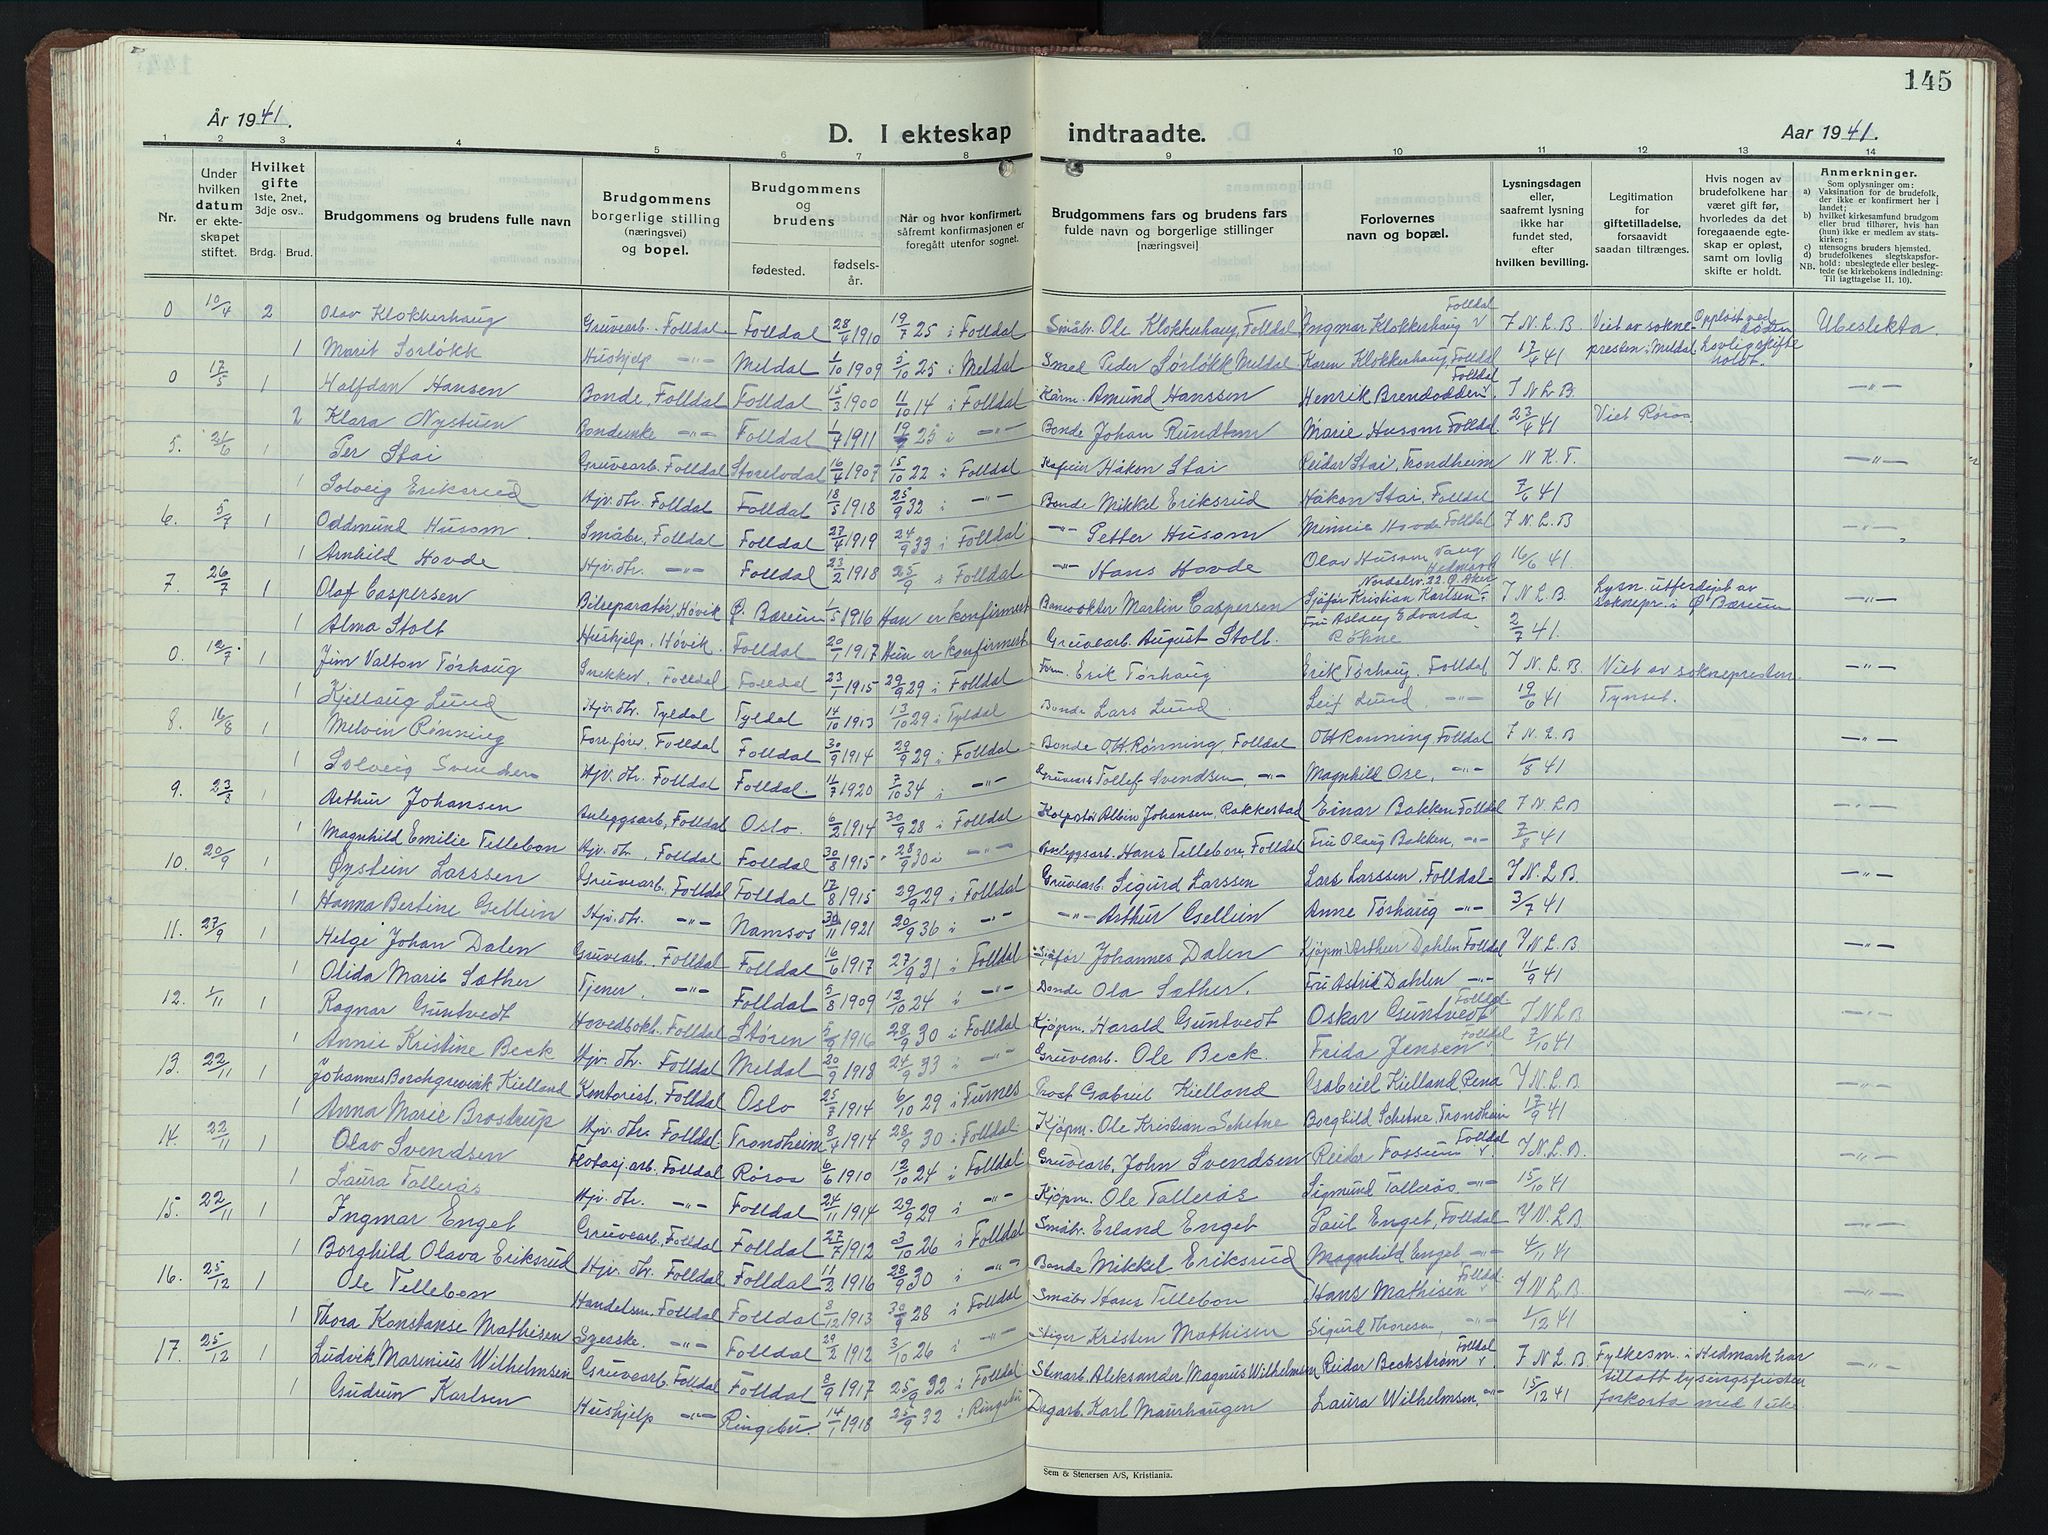 145
År 1941.
D. I ekteskap indtraadte.
Aar 1941.
1 2 3 4 5 6 7 8 9 10 11 12 13 14
Nr.
Under hvilken datum er ekteskapet stiftet.
Hvilket gifte 1ste, 2net, 3dje osv..
Brdg. Brud.
Brudgommens og brudens fulle navn
Brudgommens borgerlige stilling (næringsvei) og bopel.
Brudgommens og brudens
fødested. fødsels-år.
Når og hvor konfirmert, såfremt konfirmasjonen er foregått utenfor sognet.
Brudgommens fars og brudens fars fulde navn og borgerlige stillinger [næringsvei]
Forlovernes navn og bopæl.
Lysningsdagen eller, saafremt lysning ikke har fundet sted, efter hvilken bevilling.
Legitimation for giftetilladelse, forsaavidt saadan tiltrænges.
Hvis nogen av brudefolkene har været gift før, hvorledes da det foregaaende egteskap er opløst, samt om lovlig skifte er holdt.
Anmerkninger.
Som oplysninger om:
a) Vaksination for de brudefolk, der ikke er konfirmert her i landet;
b) hvilket kirkesamfund brudgom eller brud tilhører, hvis han (hun) ikke er medlem av statskirken;
c) utensogns bruders hjemsted.
d) brudefolkenes slegtskapsforhold: ubeslegtede eller beslegtede (se kirkebokens indledning: Til iagttagelse II. 10).
NB.
0 10/4 2 Olav Klokkerhaug Gruvearb. Folldal Folldal 28/4 1910 19/7 25 i Folldal Småbr. Ole Klokkerhaug, Folldal Ingmar Klokkerhaug Folldal F. N. L. B Viet av sokne- Oppløst ved døden Ubeslekta
1 Marit Sørløkk Hushjelp -"- Meldal 1/10 1909 5/10 25 i Meldal Smed Peder Sørløkk Meldal Karen Klokkerhaug, Folldal 17/4 41 presten i Meldal Lovlig skifte holdt.
0 17/5 1 Halfdan Hansen Bonde, Folldal Folldal 15/3 1900 11/10 14 i Folldal Amund Hanssen Henrik Brendodden Folldal F N L B. -"-
2 Klara Nystuen -"- Folldal 1/7 1911 19/7 25 i -"- Bonde Johan Rundtom Marie Husom Folldal 23/4 41 Viet Røros
5. 21/6 1 Per Stai Gruvearb. Folldal Storelvdal 16/4 1907 15/10 22 i Folldal Håkon Stai Reidar Stai, Trondheim N. K. F. -"-
1 Solveig Eriksrud Hjv. dtr. Folldal Folldal 18/5 1918 25/9 32 i -"- Bonde Mikkel Eriksrud Håkon Stai, Folldal 7/6 41
6. 5/7 1 Oddmund Husom Småbr, Folldal Folldal 27/4 1919 24/9 33 i Folldal -"- Petter Husom Minnie Hovde Folldal F N. L. B -"-
1 Arnhild Hovde Hjv. dtr. -"- Folldal 23/2 1918 25/9 i Folldal -"- Hans Hovde Olav Husom Vang Hedmark 16/6 41.
7. 26/7 1 Olaf Caspersen Bilreparatør, Høvik Ø. Bærum 1/5 1916 Han er konfirmert Banevokter Martin Caspersen Nordalsv. 22. Ø. Aker Sjåfør Kristian Karlsen F. N. L. B. Lysn. utferdiget av soknepr. i Ø. Bærum -"-
1 Alma Stolt Hushjelp, Høvik Folldal 20/1 1917 Hun er konfirmert Gruvearb. August Stolt. Fru Aslaug Edvarda Røhne 2/7 41.
0. 12/7 1 Jim Valton Tørhaug Snekker, Folldal Folldal 23/1 1915 29/9 29 i Folldal Form. Erik Tørhaug Erik Tørhaug, Folldal F N. L. B. Viet av soknepresten -"-
1 Kjellaug Lund Hjv. dtr, Tyldal Tyldal 14/10 1913 13/10 29 i Tyldal Bonde Lars Lund Leif Lund -"- 19/6 41 Tynset.
8. 16/8 1 Melvin Rønning Folldal Folldal 30/9 1914 29/9 29 i Folldal Bonde Ott Rønning, Folldal Ott Rønning, Folldal F N. L. B -"-
1 Solveig Svendsen Hjv. dtr. Folldal Folldal. 11/7 1920 7/10 34 i -"- Gruvearb Tollef Svendsen, -"- Magnhild Ore, -"- 1/8 41
9. 23/8 1 Arthur Johansen Anleggsarb, Folldal Oslo. 6/2 1914 30/9 28 i Folldal Albin Johansen, Rakkestad Einar Bakken Folldal F N. L. B -"-
1 Magnhild Emilie Tellebon Hjv. dtr., Folldal Folldal 30/8 1915 28/9 30 i -"- Anleggsarb. Hans Tellebon, Folldal Fru Olaug Bakken, -"- 7/8 41
10. 20/9 1 Øystein Larssen Gruvearb. Folldal Folldal 17/8 1915 29/9 29 i Folldal Gruvearb. Sigurd Larssen Lars Larssen, Folldal. F N L B. -"-
1 Hanna Bertine Gellein Hjv. dtr. -"- Namsos 30/11 1921 20/9 36 i -"- -"- Arthur Gellein Anne Tørhaug -"- 3/7 41
11. 27/9 1 Helge Johan Dalen Gruvearb. Folldal Folldal 16/6 1917 27/9 31 i Folldal Sjåfør Johannes Dalen Kjøpm. Arthur Dahlen Folldal F. N. L. B -"-
1 Olida Marie Sæther Tjener, -"- Folldal 5/8 1909 12/10 24 i -"- Bonde Ola Sæther. Fru Astrid Dahlen -"- 11/9 41
12. 1/11 1 Ragnar Guntvedt Hovedbokh. Folldal Støren 5/9 1916 28/9 30 i Folldal Kjøpm. Harald Guntvedt Oskar Guntvedt Folldal F N L B -"-
1 Annie Kristine Beck Hjv. dtr. Folldal Meldal 20/9 1918 24/9 33 i -"- Gruvearb. Ole Beck. Frida Jensen Folldal 7/10 41
13. 22/11 1 Johannes Borchgrevink Kielland Kontorist, Folldal Oslo 25/7 1914 6/10 29 i Furnes Prost Gabriel Kielland Gabriel Kielland, Rena F N. L. B -"-
1 Anna Marie Brostrup Hjv. dtr. Folldal. Trondheim 8/4 1914 28/9 30 i Folldal. Kjøpm. Ole Kristian Schetne Borghild Schetne Trondheim 17/9 41
14. 22/11 1 Olav Svendsen Flotasj.arb. Folldal Røros 6/6 1910 12/10 24 i Folldal Gruvearb. John Svendsen Reidar Fossum Folldal F. N. L. B. -"-
1 Laura Tallerås Hjv. dtr. -"- Folldal 24/11 1914 29/9 29 i -"- Kjøpm. Ole Tallerås Sigmund Tallerås, -"- 15/10 41
15. 22/11 1 Ingmar Enget Gruvearb. Folldal Folldal 27/7 1912 3/10 26 i Folldal Småbr. Erland Enget Paul Enget, Folldal F N. L. B -"-
1 Borghild Olava Eriksrud Hjv. dtr. Folldal Folldal 11/2 1916 28/9 30 i -"- Bonde Mikkel Eriksrud Magnhild Enget -"- 4/11 41
16. 25/12 1 Ole Tellebon Handelsm. Folldal Folldal 8/12 1913 30/9 28 i Folldal Småbr. Hans Tellebon Hans Mathisen Folldal F N L B -"-
1 Thora Konstanse Mathisen Syerske. -"- Folldal 29/2 1912 3/10 26 i -"- Stiger Kristen Mathisen Sigurd Thoresen, -"- 1/12 41
17. 25/12 1 Ludvik Marenius Wilhelmsen Gruvearb. Folldal Folldal 8/9 1917 25/9 32 i Folldal Stenarb. Aleksander Magnus Wilhelmsen Reidar Beckstrøm Folldal F N L B Fylkesm. i Hedmark har tillatt lysingsfristen -"-
1 Gudrun Karlsen Hushjelp -"- Ringebu. 14/1 1918 25/9 32 i Ringebu Dagarb. Karl Maurhaugen Laura Wilhelmsen, -"- 15/12 41 forkorta med 1 uke
Sem & Stenersen A/S, Kristiania.